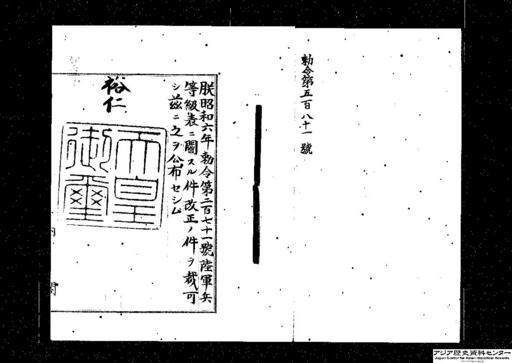 勅令第五百八十一號
朕昭和六年勅令第二百七十一號陸軍兵
等級表ニ關スル件改正ノ件ヲ裁可
シ茲ニ之ヲ公布セシム
裕仁
天皇
御璽
内閣
アジア歴史資料センター
Japan Center for Asian Historical Records